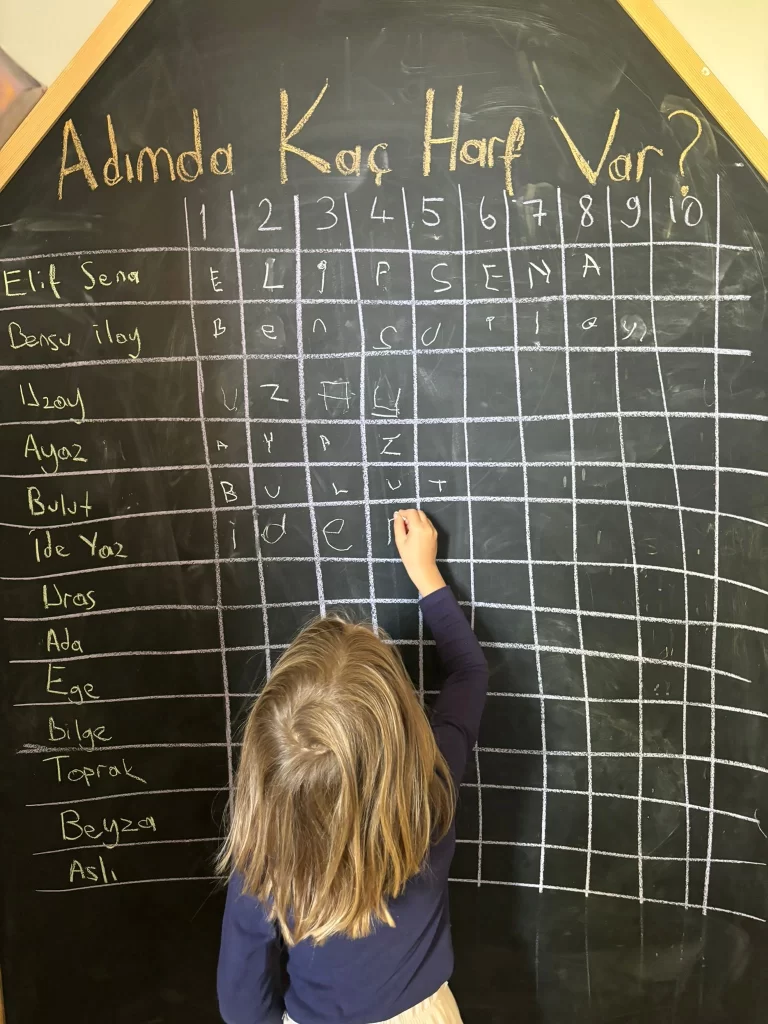 Adımda Kaç Harf Var?
1 2 3 4 5 6 7 8 9 10
Elif Sena E L İ F S E N A
Bensu ilay B e n s u i l a y
Uzay U Z A Y
Ayaz A Y A Z
Bulut B U L U T
İde Yaz i d e
Uras
Ada
Ege
Bilge
Toprak
Beyza
Aslı